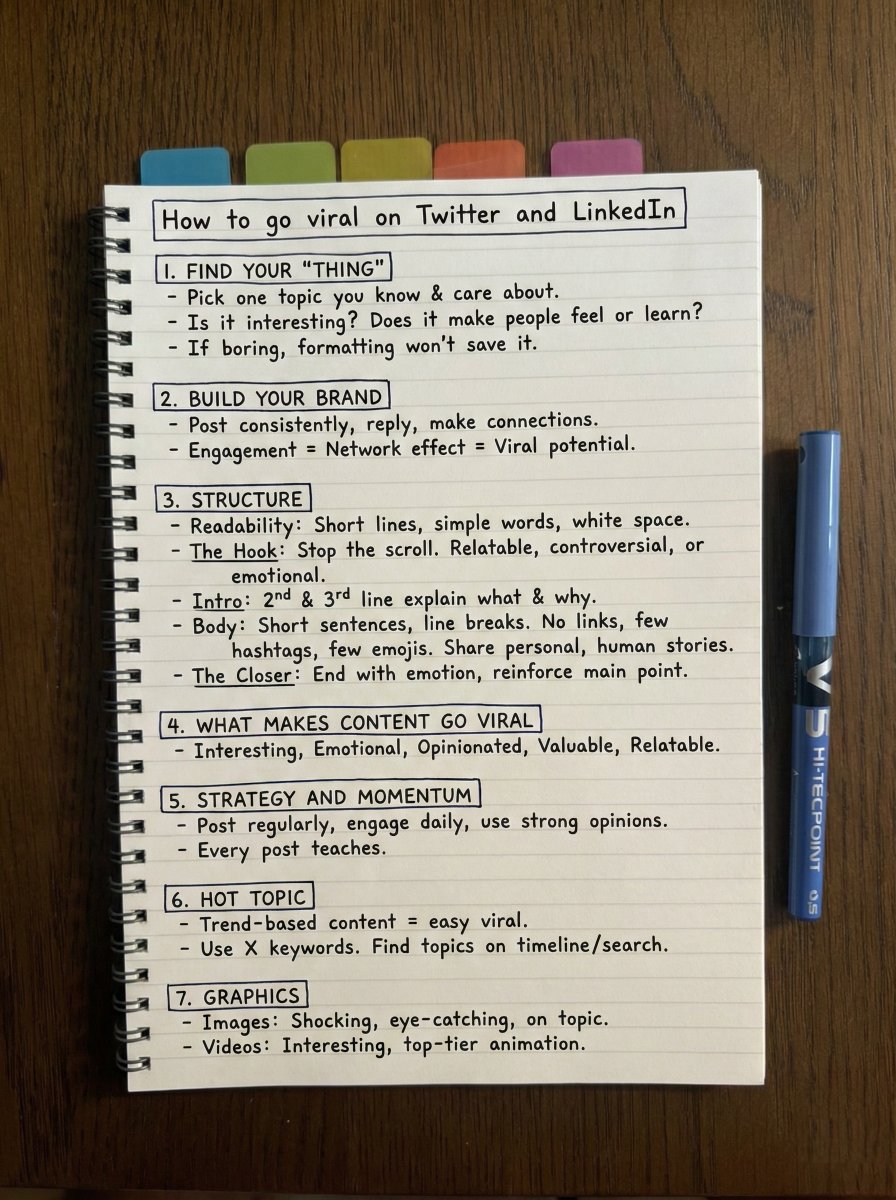 How to go viral on Twitter and LinkedIn
1. FIND YOUR "THING"
- Pick one topic you know & care about.
- Is it interesting? Does it make people feel or learn?
- If boring, formatting won't save it.
2. BUILD YOUR BRAND
- Post consistently, reply, make connections.
- Engagement = Network effect = Viral potential.
3. STRUCTURE
- Readability: Short lines, simple words, white space.
- The Hook: Stop the scroll. Relatable, controversial, or
emotional.
- Intro: 2nd & 3rd line explain what & why.
- Body: Short sentences, line breaks. No links, few
hashtags, few emojis. Share personal, human stories.
- The Closer: End with emotion, reinforce main point.
4. WHAT MAKES CONTENT GO VIRAL
- Interesting, Emotional, Opinionated, Valuable, Relatable.
5. STRATEGY AND MOMENTUM
- Post regularly, engage daily, use strong opinions.
- Every post teaches.
6. HOT TOPIC
- Trend-based content = easy viral.
- Use X keywords. Find topics on timeline/search.
7. GRAPHICS
- Images: Shocking, eye-catching, on topic.
- Videos: Interesting, top-tier animation.
V5 HI-TECPOINT 0,5